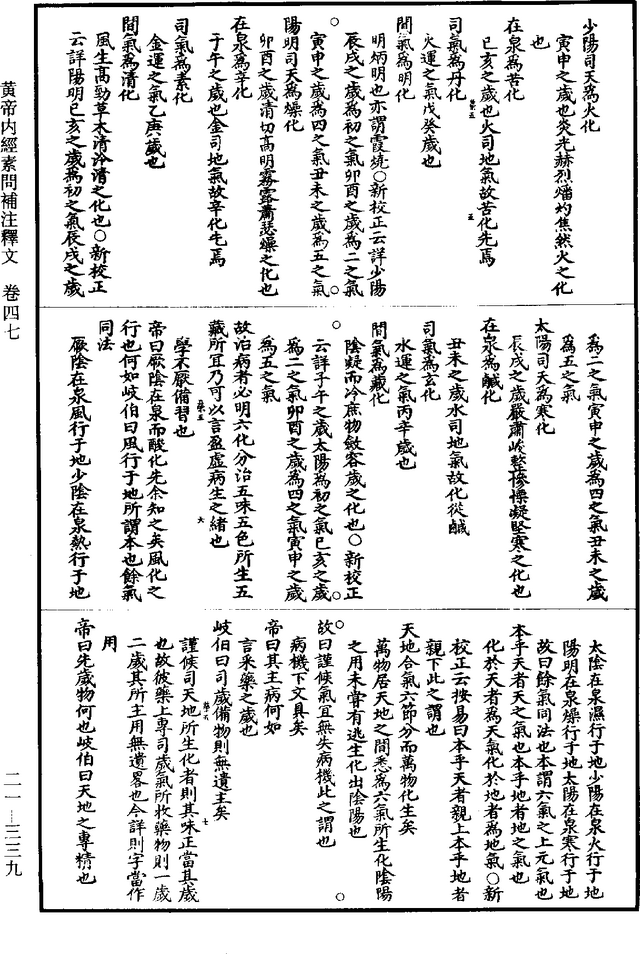 少陽司天為火化
寅申之歲也炎光赫烈燔灼焦然火之化
也
在泉為苦化
巳亥之歲也火司地氣故苦化先焉
司氣為丹化
火運之氣戊癸歲也
間氣為明化
明炳明也亦謂霞燒○新校正云詳少陽
辰戌之歲為初之氣卯酉之歲為二之氣
寅申之歲為四之氣丑未之歲為五之氣
陽明司天為燥化
卯酉之歲清切高明霧露蕭瑟燥之化也
在泉為辛化
子午之歲也金司地氣故辛化先焉
司氣為素化
金運之氣乙庚歲也
間氣為清化
風生高勁草木清泠清之化也○新校正
云詳陽明巳亥之歲為初之氣辰戌之歲
為二之氣寅申之歲為四之氣丑未之歲
為五之氣
太陽司天為寒化
辰戌之歲嚴肅峻整慘慄凝堅寒之化也
在泉為鹹化
丑未之歲水司地氣故化從鹹
司氣為玄化
水運之氣丙辛歲也
間氣為藏化
陰凝而冷庶物斂容歲之化也○新校正
云詳子午之歲太陽為初之氣巳亥之歲
為二之氣卯酉之歲為四之氣寅申之歲
為五之氣
故治病者必明六化分治五味五色所生五
藏所宜乃可以言盈虛病生之緒也
學不厭備習也
帝曰厥陰在泉而酸化先余知之矣風化之
行也何如岐伯曰風行于地所謂本也餘氣
同法
厥陰在泉風行于地少陰在泉熱行于地
太陰在泉濕行于地少陽在泉火行于地
陽明在泉燥行于地太陽在泉寒行于地
故曰餘氣同法也本謂六氣之上元氣也
本乎天者天之氣也本乎地者地之氣也
化於天者為天氣化於地者為地氣○新
校正云按易曰本乎天者親上本乎地者
親下此之謂也
天地合氣六節分而萬物化生矣
萬物居天地之間悉為六氣所生化陰陽
之用未嘗有逃生化出陰陽也
故曰謹候氣宜無失病機此之謂也
病機下文具矣
帝曰其主病何如
言采藥之歲也
岐伯曰司歲備物則無遺主矣
謹候司天地所生化者則其味正當其歲
也故彼藥上專司歲氣所收藥物則一歲
二歲其所主用無遺畧也今詳則字當作
用
帝曰先歲物何也岐伯曰天地之專精也
黃帝内經素問補注釋文　卷四七
二一—三三九